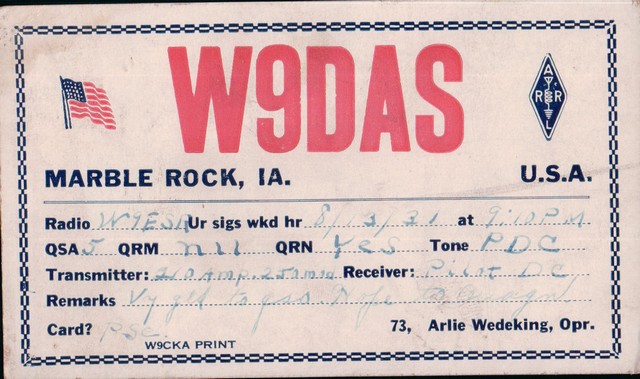 W9DAS
A
R R
L
MARBLE ROCK, IA. U.S.A.
Radio W9ESR Ur sigs wkd hr 8/13/31 at 9:10 PM
QSA 5 QRM nil QRN Yes Tone PDC
Transmitter: 210 Amp. Receiver: Pilot DC
Remarks Vy gld to qso
Card? Pse. 73, Arlie Wedeking, Opr.
W9CKA PRINT